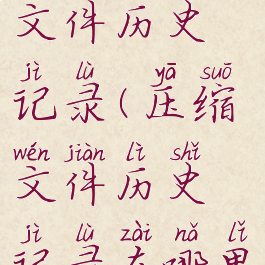 文件历史
jì lù yā suō
记录(压缩
wén jiàn lì shǐ
文件历史
jì lù zài nǎ lǐ
记录在哪里